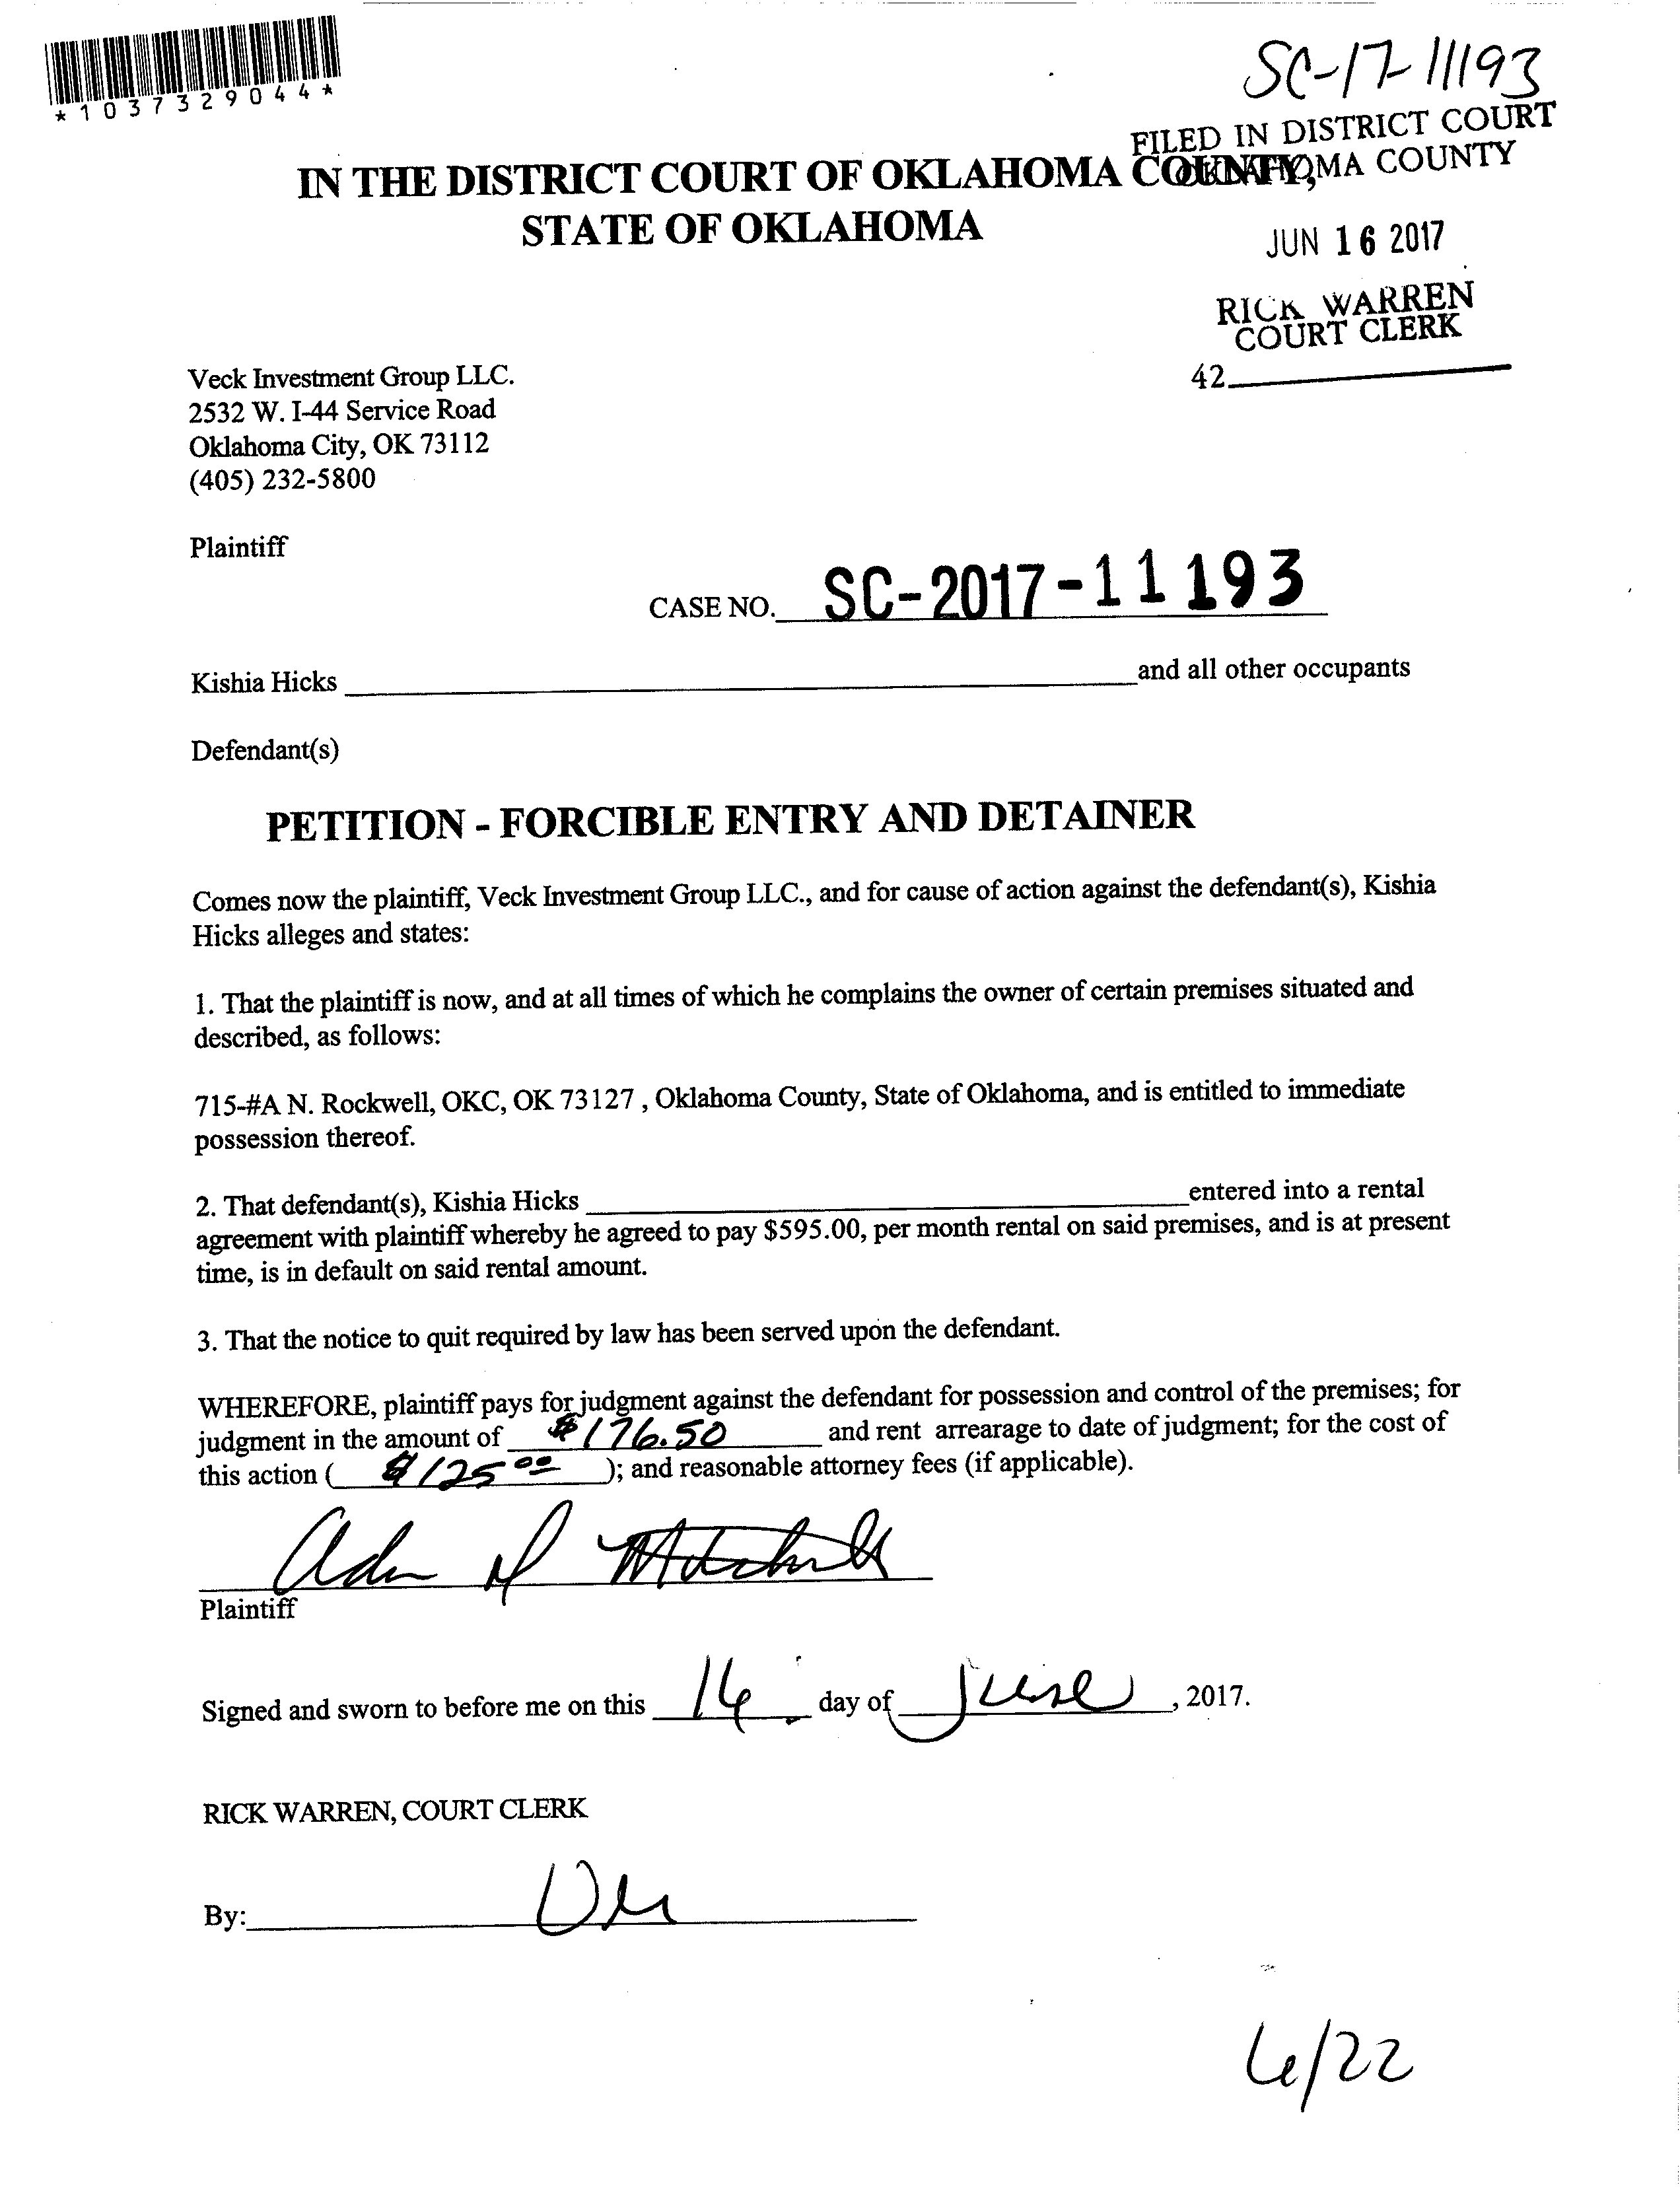 *1037329044*
SC-17-11193
FILED IN DISTRICT COURT
OKLAHOMA COUNTY
IN THE DISTRICT COURT OF OKLAHOMA COUNTY,
STATE OF OKLAHOMA
JUN 16 2017
RICK WARREN
COURT CLERK
42
Veck Investment Group LLC.
2532 W. I-44 Service Road
Oklahoma City, OK 73112
(405) 232-5800
Plaintiff
CASE NO. SC-2017-11193
Kishia Hicks and all other occupants
Defendant(s)
PETITION - FORCIBLE ENTRY AND DETAINER
Comes now the plaintiff, Veck Investment Group LLC., and for cause of action against the defendant(s), Kishia
Hicks alleges and states:
1. That the plaintiff is now, and at all times of which he complains the owner of certain premises situated and
described, as follows:
715-#A N. Rockwell, OKC, OK 73127 , Oklahoma County, State of Oklahoma, and is entitled to immediate
possession thereof.
2. That defendant(s), Kishia Hicks entered into a rental
agreement with plaintiff whereby he agreed to pay $595.00, per month rental on said premises, and is at present
time, is in default on said rental amount.
3. That the notice to quit required by law has been served upon the defendant.
WHEREFORE, plaintiff pays for judgment against the defendant for possession and control of the premises; for
judgment in the amount of $176.50 and rent arrearage to date of judgment; for the cost of
this action ( $125 00 ); and reasonable attorney fees (if applicable).
Plaintiff
Signed and sworn to before me on this 16 day of June , 2017.
RICK WARREN, COURT CLERK
By:
6/22